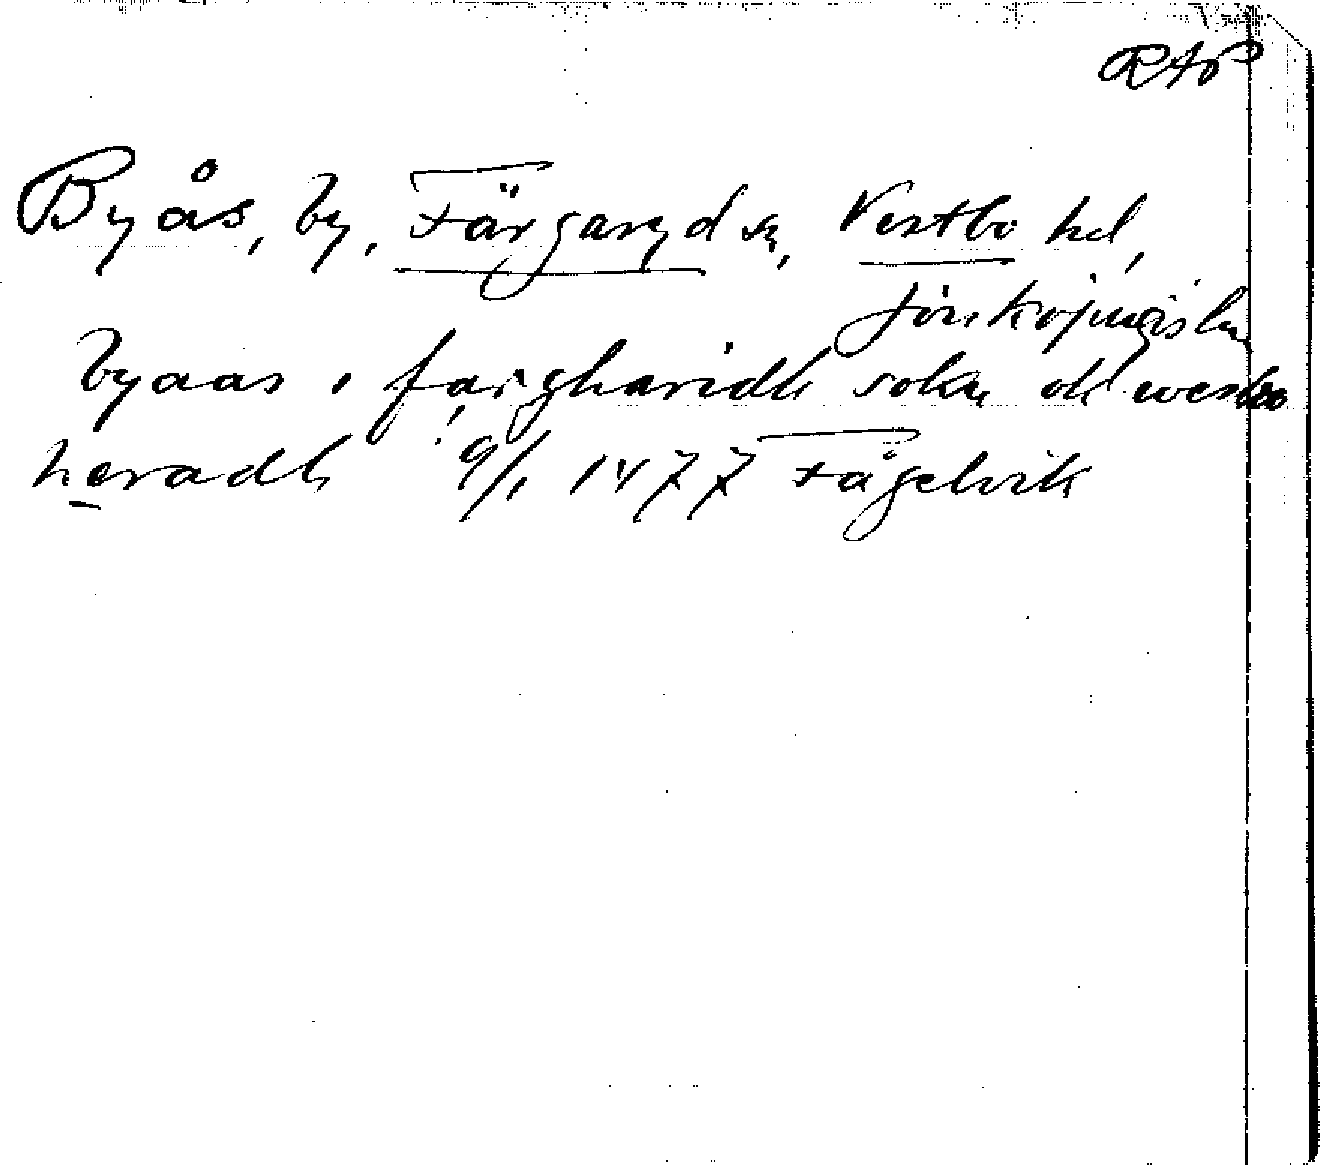 RAP
Byås, by, Färgaryd sn, Vestbo hd,
Jönköpings län
byaas i fargharidh sokn ok wesbo
heradh 9/1 1477 Fågelvik